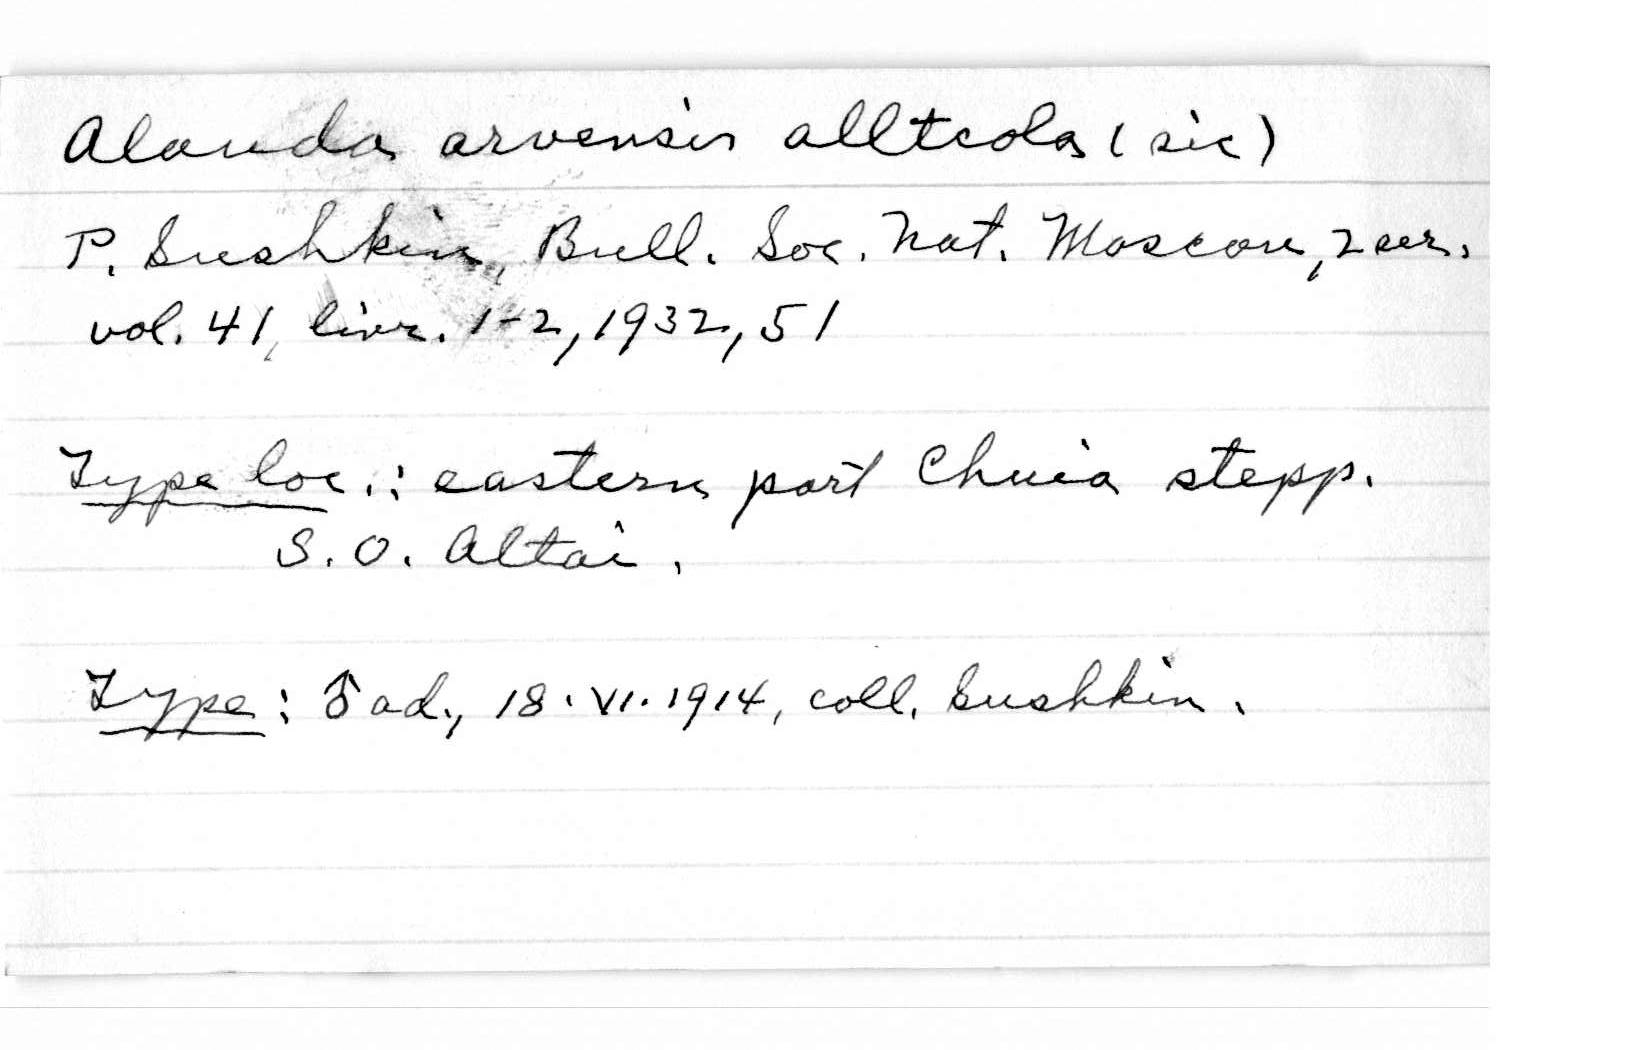 Alauda arvensis alltcola (sic)
P. Sushkin, Bull. Soc. Nat. Moscou, 2 ser.
vol. 41, livr. 1-2, 1932, 51
Type loc.: eastern part Chuia stepp.
S. O. Altai.
Type: ♂ ad., 18.VI.1914, coll. Sushkin.